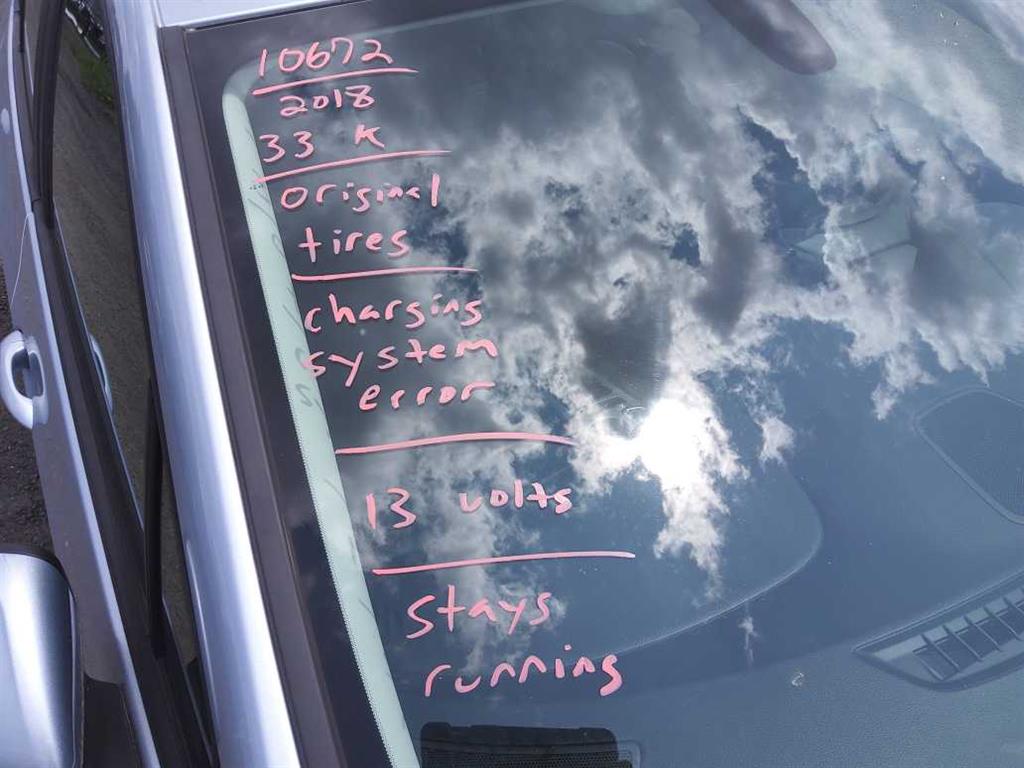 10672
2018
33 K
original
tires
charging
system
error
13 volts
stays
running